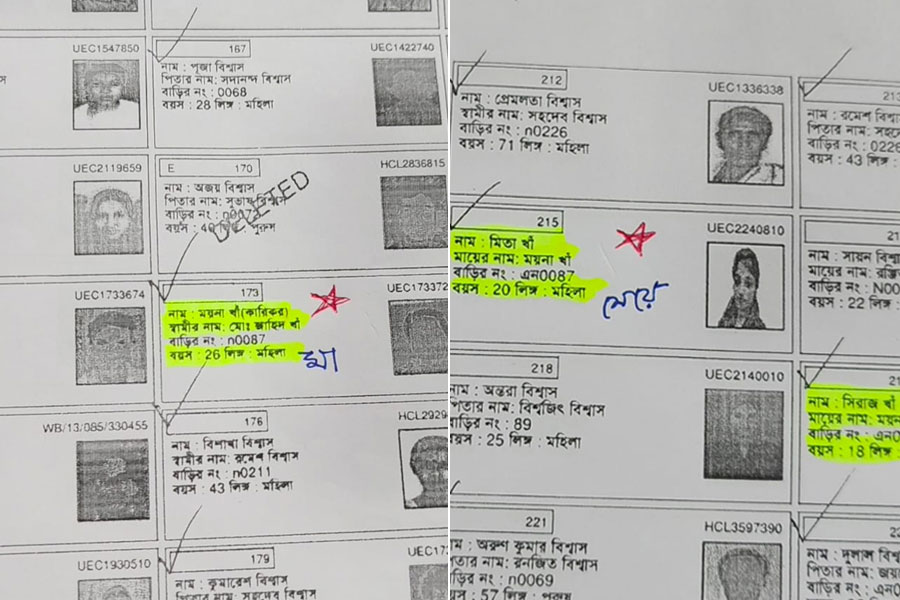 UEC1547850
167
নাম : পূজা বিশ্বাস
পিতার নাম: সদানন্দ বিশ্বাস
বাড়ির নং : 0068
বয়স : 28 লিঙ্গ : মহিলা
UEC1422740
UEC2119659
E 170
নাম : অজয় বিশ্বাস
পিতার নাম: সুভাষ বিশ্বাস
বাড়ির নং :
বয়স : পুরুষ
DELETED
HCL2836815
UEC1733674
173
নাম : ময়না খাঁ(কারিকর)
স্বামীর নাম: মোঃ জাহিদ খাঁ
বাড়ির নং : n0087
বয়স : 26 লিঙ্গ : মহিলা
মা
UEC173372
WB/13/085/330455
176
নাম : বিশাখা বিশ্বাস
স্বামীর নাম: রমেশ বিশ্বাস
বাড়ির নং : n0211
বয়স : 43 লিঙ্গ : মহিলা
HCL2929
UEC1930510
179
নাম : কুমারেশ বিশ্বাস
পিতার নাম: সহদেব বিশ্বাস
212
নাম : প্রেমলতা বিশ্বাস
স্বামীর নাম: সহদেব বিশ্বাস
বাড়ির নং : n0226
বয়স : 71 লিঙ্গ : মহিলা
UEC1336338
নাম : রমেশ বিশ্বাস
পিতার নাম: সহদে
বাড়ির নং : 0226
বয়স : 43 লিঙ্গ
215
নাম : মিতা খাঁ
মায়ের নাম: ময়না খাঁ
বাড়ির নং : এন0087
বয়স : 20 লিঙ্গ : মহিলা
মেয়ে
UEC2240810
নাম : সায়ন বিশ্বা
মায়ের নাম:
বাড়ির নং : N00
বয়স : 22 লিঙ্গ :
218
নাম : অন্তরা বিশ্বাস
পিতার নাম: বিশ্বজিৎ বিশ্বাস
বাড়ির নং : 89
বয়স : 25 লিঙ্গ : মহিলা
UEC2140010
নাম : সিরাজ খাঁ
মায়ের নাম: ময়ন
বাড়ির নং : এন0
বয়স : 18 লিঙ্গ :
221
নাম : অরুণ কুমার বিশ্বাস
পিতার নাম: রনজিত বিশ্বাস
বাড়ির নং : n0069
বয়স : 57 লিঙ্গ : পুরুষ
HCL3597390
নাম : দুলাল বিশ্ব
পিতার নাম:
বাড়ির নং :